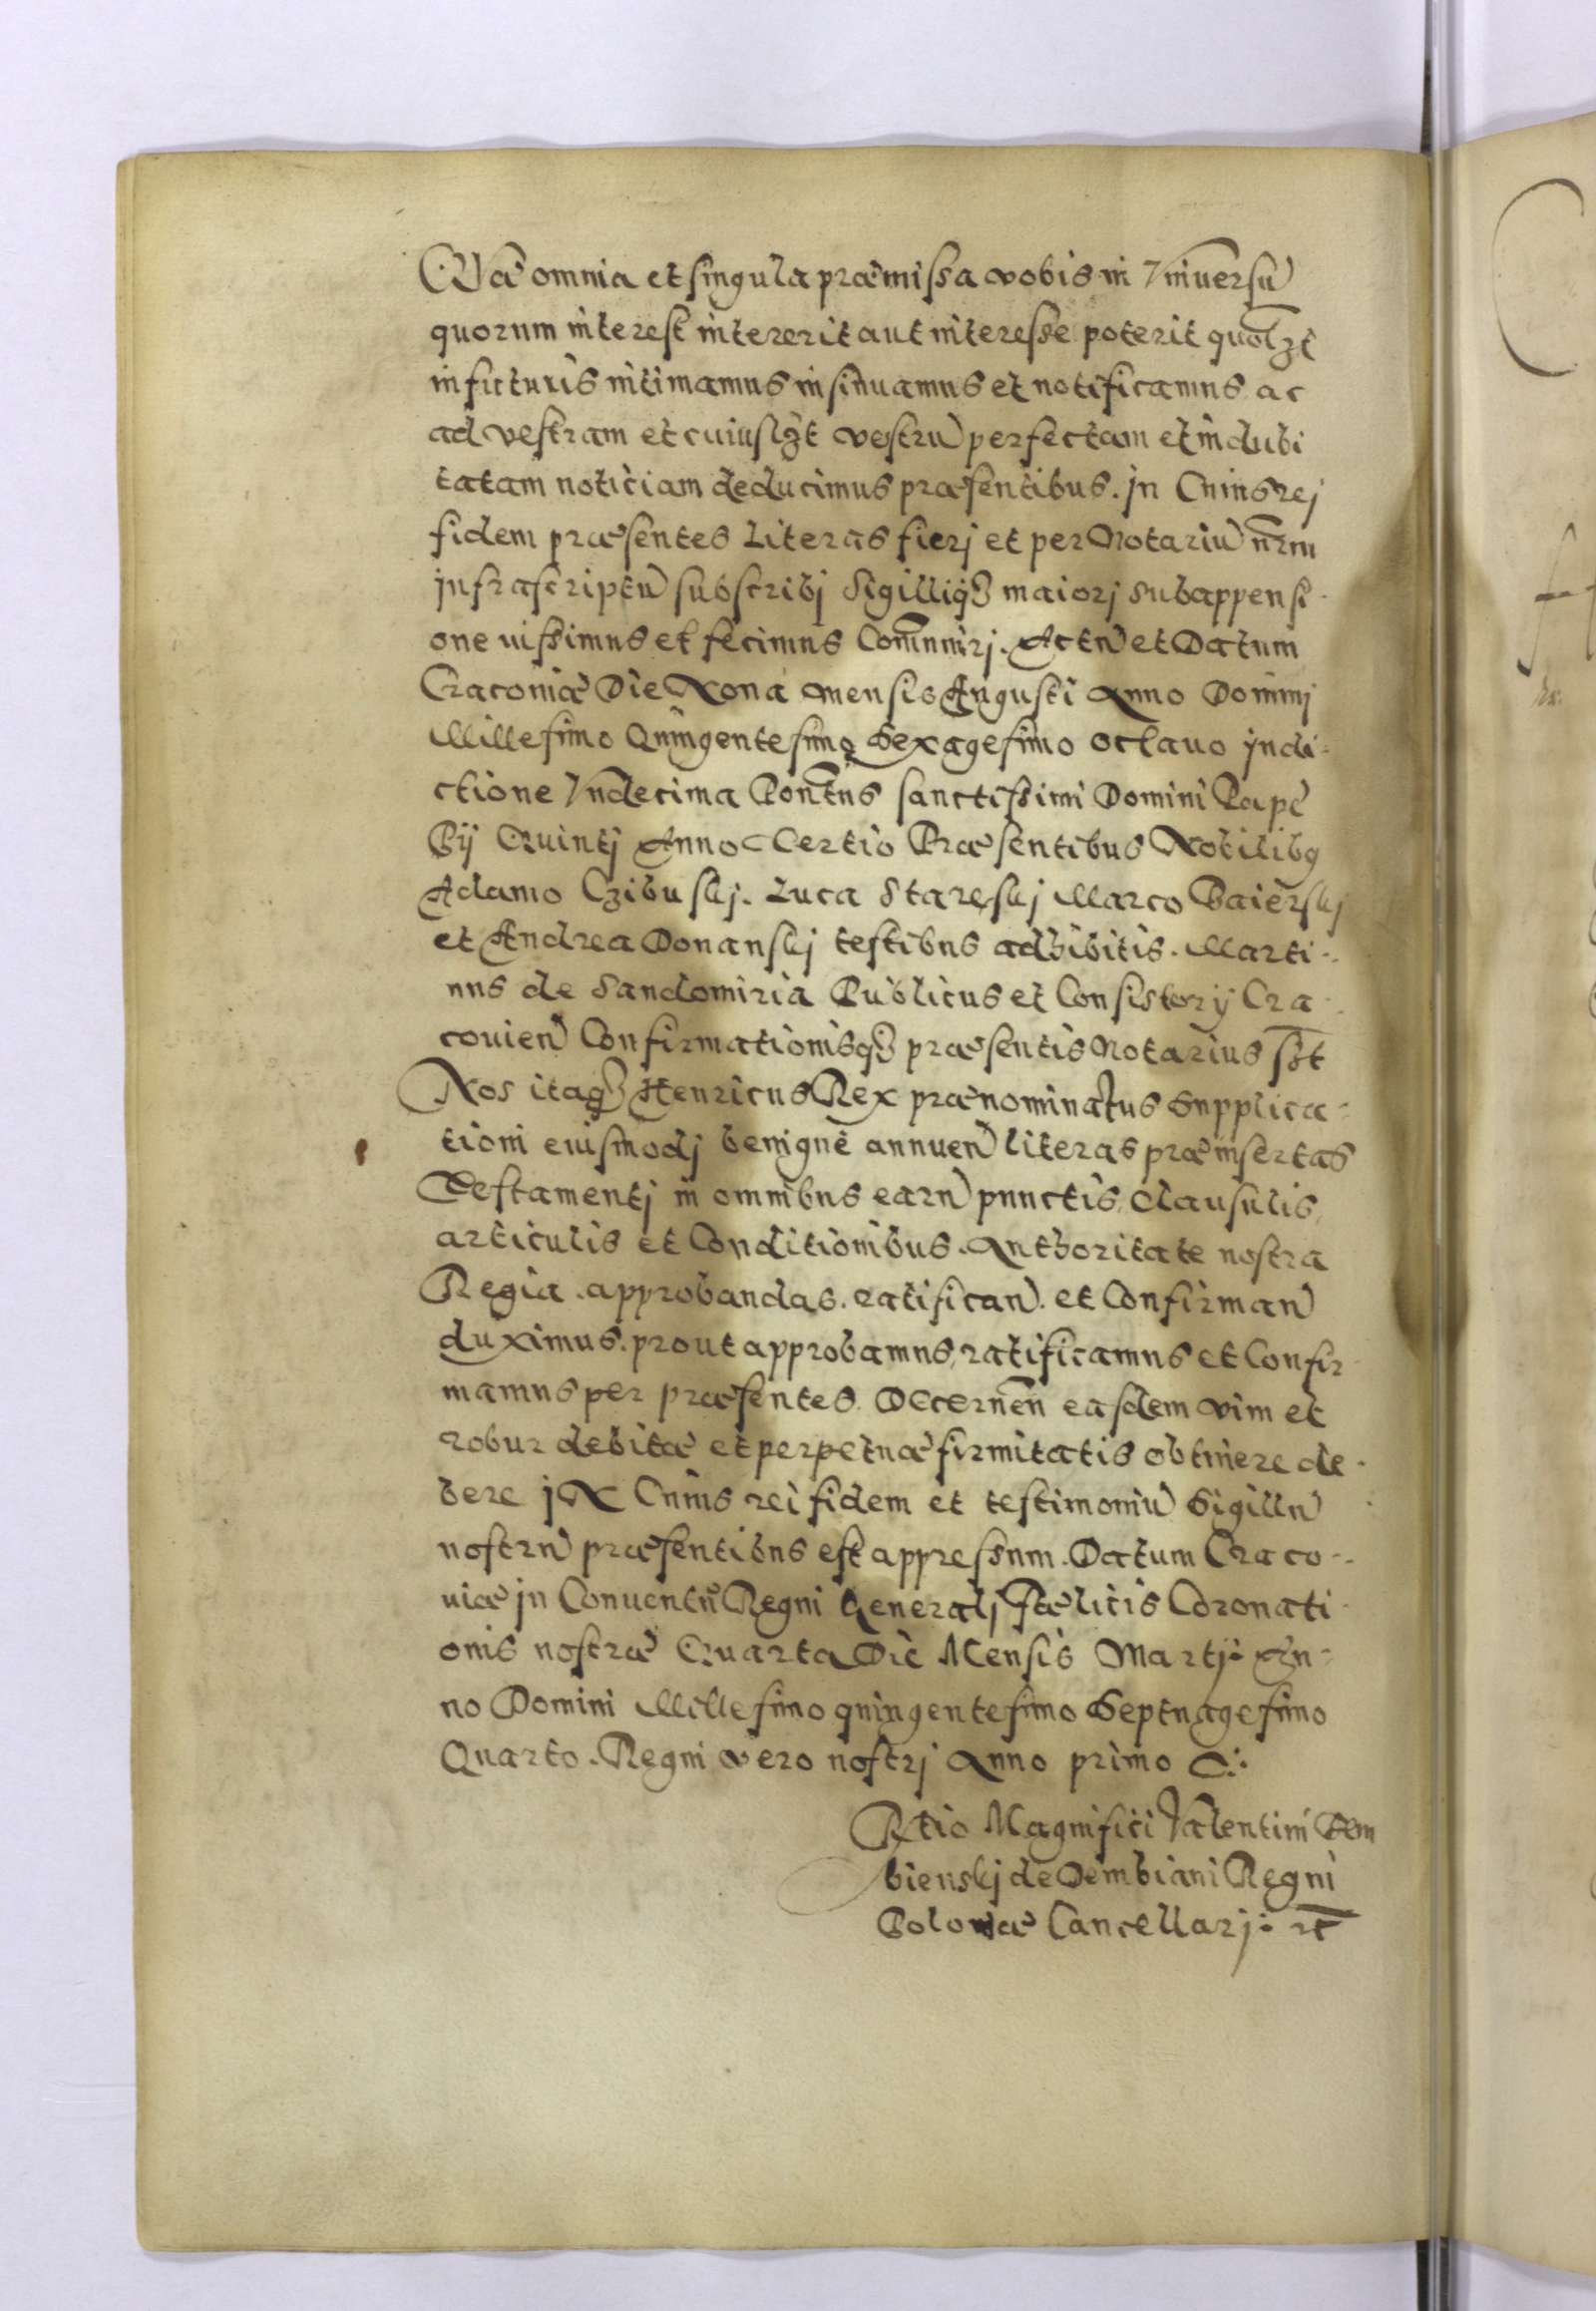 Quæ omnia et singula præmissa vobis in Vniuersū
quorum interest intererit aut interesse poterit quolzt
in futuris intimamus insinuamus et notificamus ac
ad vestram et cuiuslzt vestrū perfectam et indubi
tatam noticiam deducimus præsentibus. jn Cuius rej
fidem præsentes Literas fierj et per Notariū nrm
jnfrascriptū subscribj Sigilliqz maiorj Subappensi-
one uissimus et fecimus Communirj. Actū et Datum
Cracouiæ Die Nona mensis Augusti Anno Dominj
Millesimo Quingentesimo Sexagesimo Octauo jndi-
ctione Vndecima Pontus sanctissimi Domini Papę
Pij Quintj Anno Tertio Præsentibus Nobilibq
Adamo Czibuskj. Luca Stareskj Marco Baierskj
et Andrea Donanskj testibus adhibitis. Marti-
nus de Sandomiria Publicus et Consistorij Cra-
couień Confirmationisqz præsentis Notarius sst
Nos itaqz Henricus Rex prænominatus Supplica-
tioni eiusmodj benignè annueń literas præinsertas
Testamentj in omnibus earū punctis, Clausulis,
articulis et Conditionibus. Authoritate nostra
Regia. approbandas. ratificań. et Confirmań
duximus. prout approbamus, ratificamus et Confir-
mamus per præsentes. Decerneñ easdem vim et
robur debitæ et perpetuæ firmitatis obtinere de-
bere jN Cuius rei fidem et testimoniū Sigillū
nostrū præsentibus est appressum. Datum Craco-
uiæ jn Conuentu Regni Generalj Fælicis Coronati-
onis nostræ Quarta Die Mensis Martij. An-
no Domini Millesimo quingentesimo Septuagesimo
Quarto. Regni vero nostrj Anno primo
Rtio Magnifici Valentini Dem
bienskj de Dembiani Regni
Poloniæ Cancellarj. rc